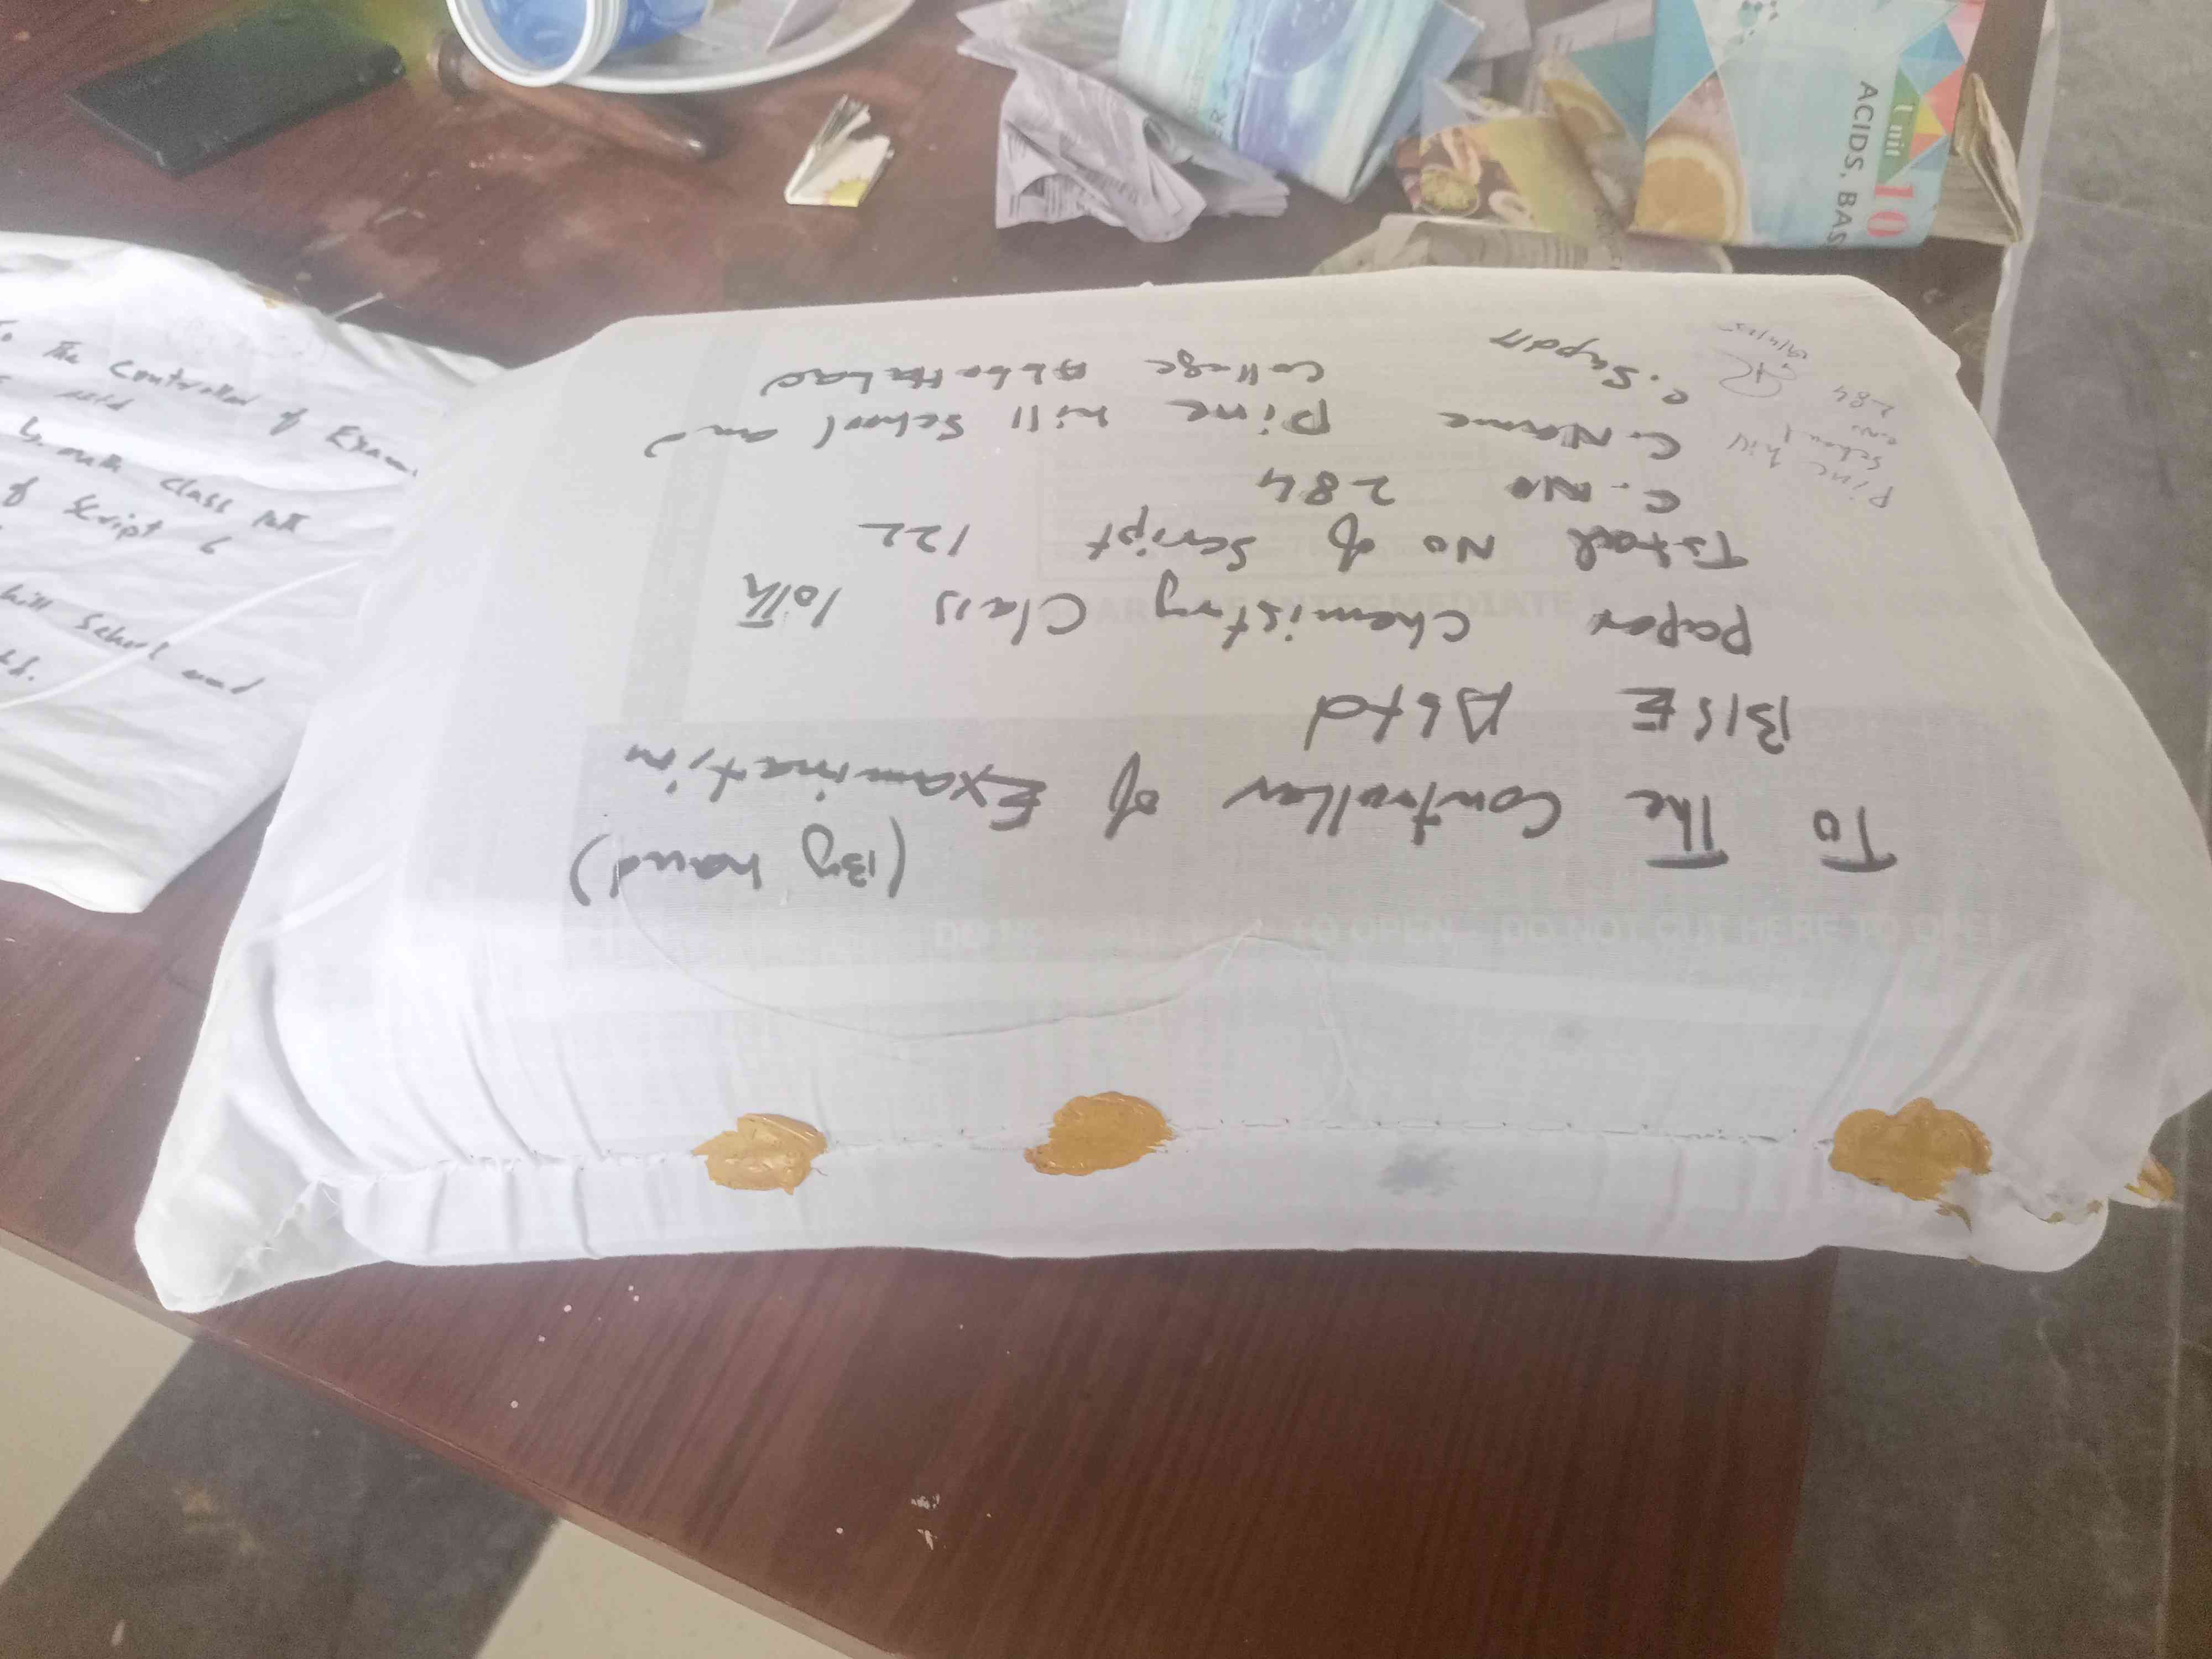 (By hand)
To The Controller of Examination
BISE Abtd
Paper Chemistry Class 10th
Total No of Script 122
C. No 284
C. Name Pine hill School and
College Abbottabad
C. Supdtt
Pine hill
School
284
To The Controller of Exam
Class
of Script 6
hill School and
DO NOT CUT HERE TO OPEN
TO OPEN
INTERMEDIATE
Unit 10
ACIDS, BAS